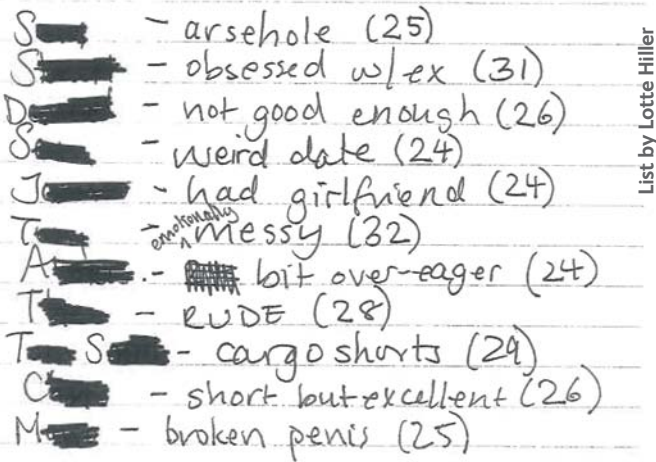 S - arsehole (25)
S - obsessed w/ex (31)
D - not good enough (26)
S - weird date (24)
J - had girlfriend (24)
T - emotionally messy (32)
A - bit over-eager (24)
T - RUDE (28)
T S - cargo shorts (29)
C - short but excellent (26)
M - broken penis (25)
List by Lotte Hiller